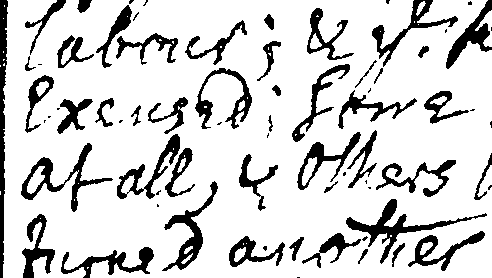 labour; & yt.
Excused; Some
at all, & Others
turned another